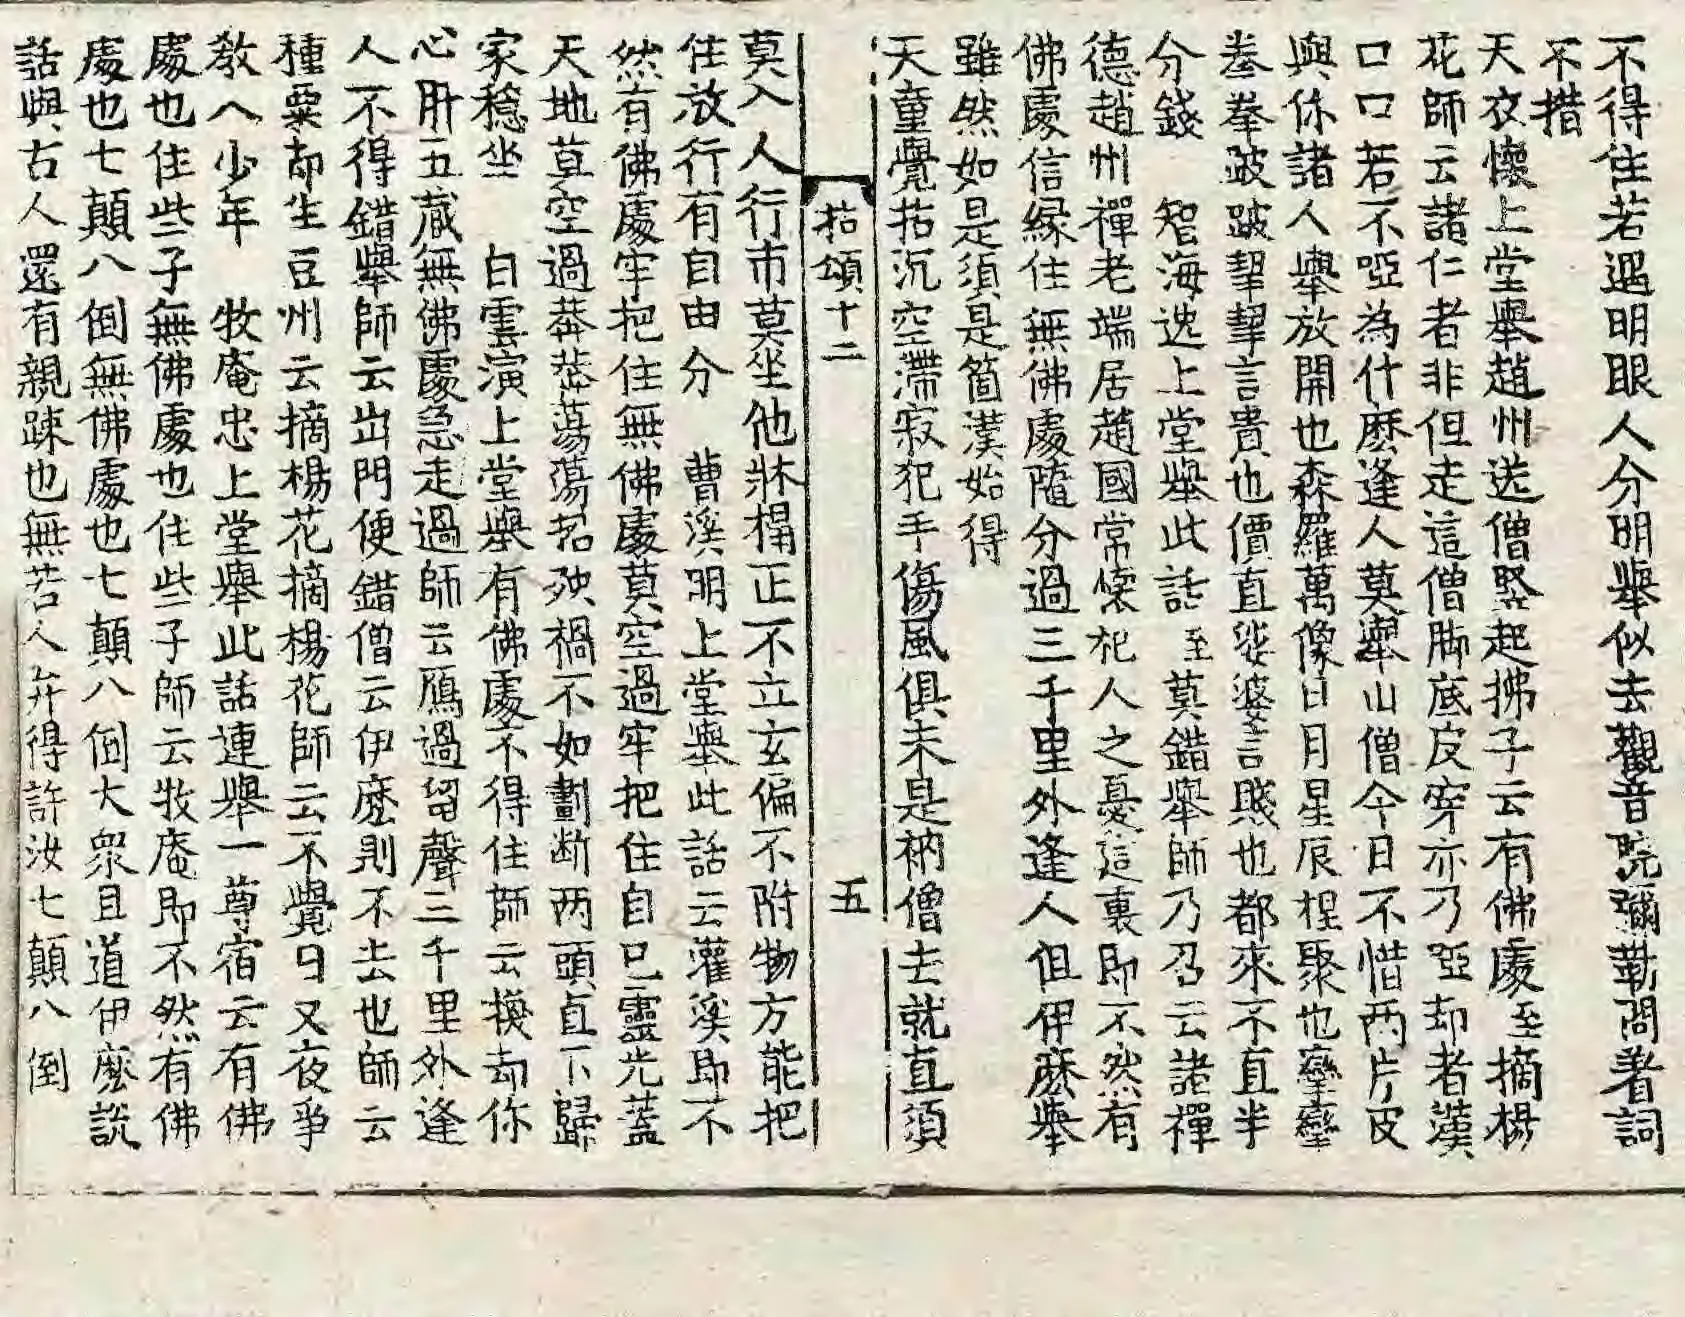 不得住若遇明眼人分明舉似去觀音院彌勒問着詞
不措
天衣懷上堂舉趙州送僧竪起拂子云有佛處至摘楊
花師云諸仁者非但走這僧脚底皮穿亦乃啞却者漢
口口若不啞為什麽逢人莫舉山僧今日不惜两片皮
與你諸人舉放開也森羅萬像日月星辰捏聚也攣攣
拳拳跛跛挈挈言貴也價直娑婆言賤也都來不直半
分錢 智海逸上堂舉此話至莫錯舉師乃召云諸禪
德趙州禪老端居趙國常懷杞人之憂這裏即不然有
佛處信緣住無佛處隨分過三千里外逢人但伊麽舉
雖然如是須是箇漢始得
天童覺拈沉空滯寂犯手傷風俱未是衲僧去就直須
拈頌十二 五
莫入人行市莫坐他牀榻正不立玄偏不附物方能把
住放行有自由分 曹溪明上堂舉此話云灌溪即不
然有佛處牢把住無佛處莫空過牢把住自己靈光蓋
天地莫空過莽莽蕩蕩招殃禍不如劃断两頭直下歸
家穩坐 白雲演上堂舉有佛處不得住師云換却你
心肝五蔵無佛處急走過師云鴈過留聲三千里外逢
人不得錯舉師云出門便錯僧云伊麽則不去也師云
種粟却生豆州云摘楊花摘楊花師云不覺日又夜爭
教人少年 牧庵忠上堂舉此話連舉一尊宿云有佛
處也住些子無佛處也住些子師云牧庵即不然有佛
處也七顛八倒無佛處也七顛八倒大衆且道伊麽說
話與古人還有親踈也無若人弁得許汝七顛八倒